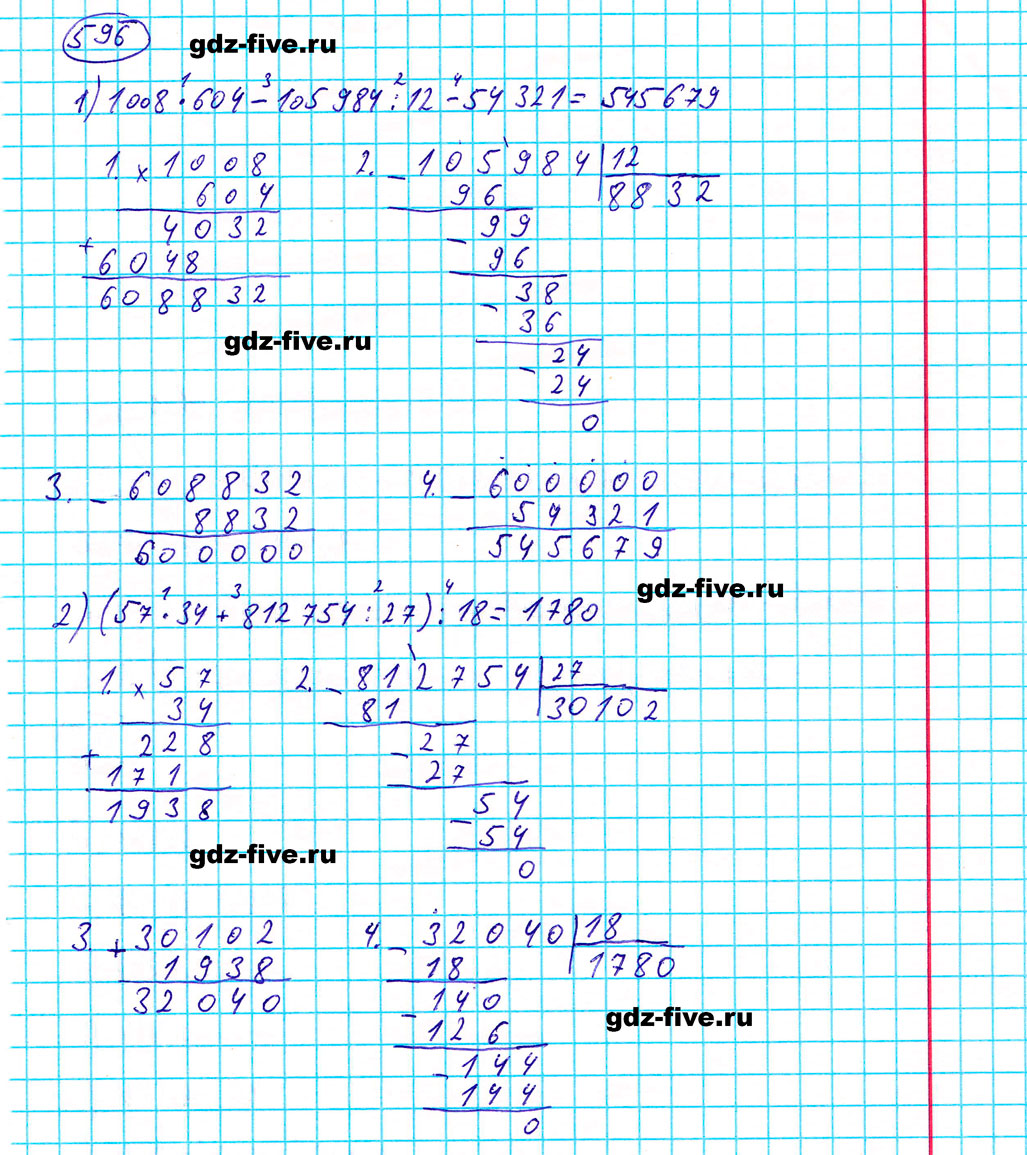 596 gdz-five.ru
1) 1008 · 604 - 105984 : 12 - 54321 = 545679
1 3 2 4
1. × 1008
604
4032
+
6048
608832
2. - 105984 | 12
96 8832
- 99
96
- 38
36
- 24
24
0
gdz-five.ru
3. - 608832
8832
600000
4. - 600000
54321
545679
gdz-five.ru
2) (57 · 34 + 812754 : 27) : 18 = 1780
1 3 2 4
1. × 57
34
+ 228
171
1938
2. - 812754 | 27
81 30102
- 27
27
- 54
54
0
gdz-five.ru
3. + 30102
1938
32040
4. - 32040 | 18
18 1780
- 140
126
- 144
144
0
gdz-five.ru